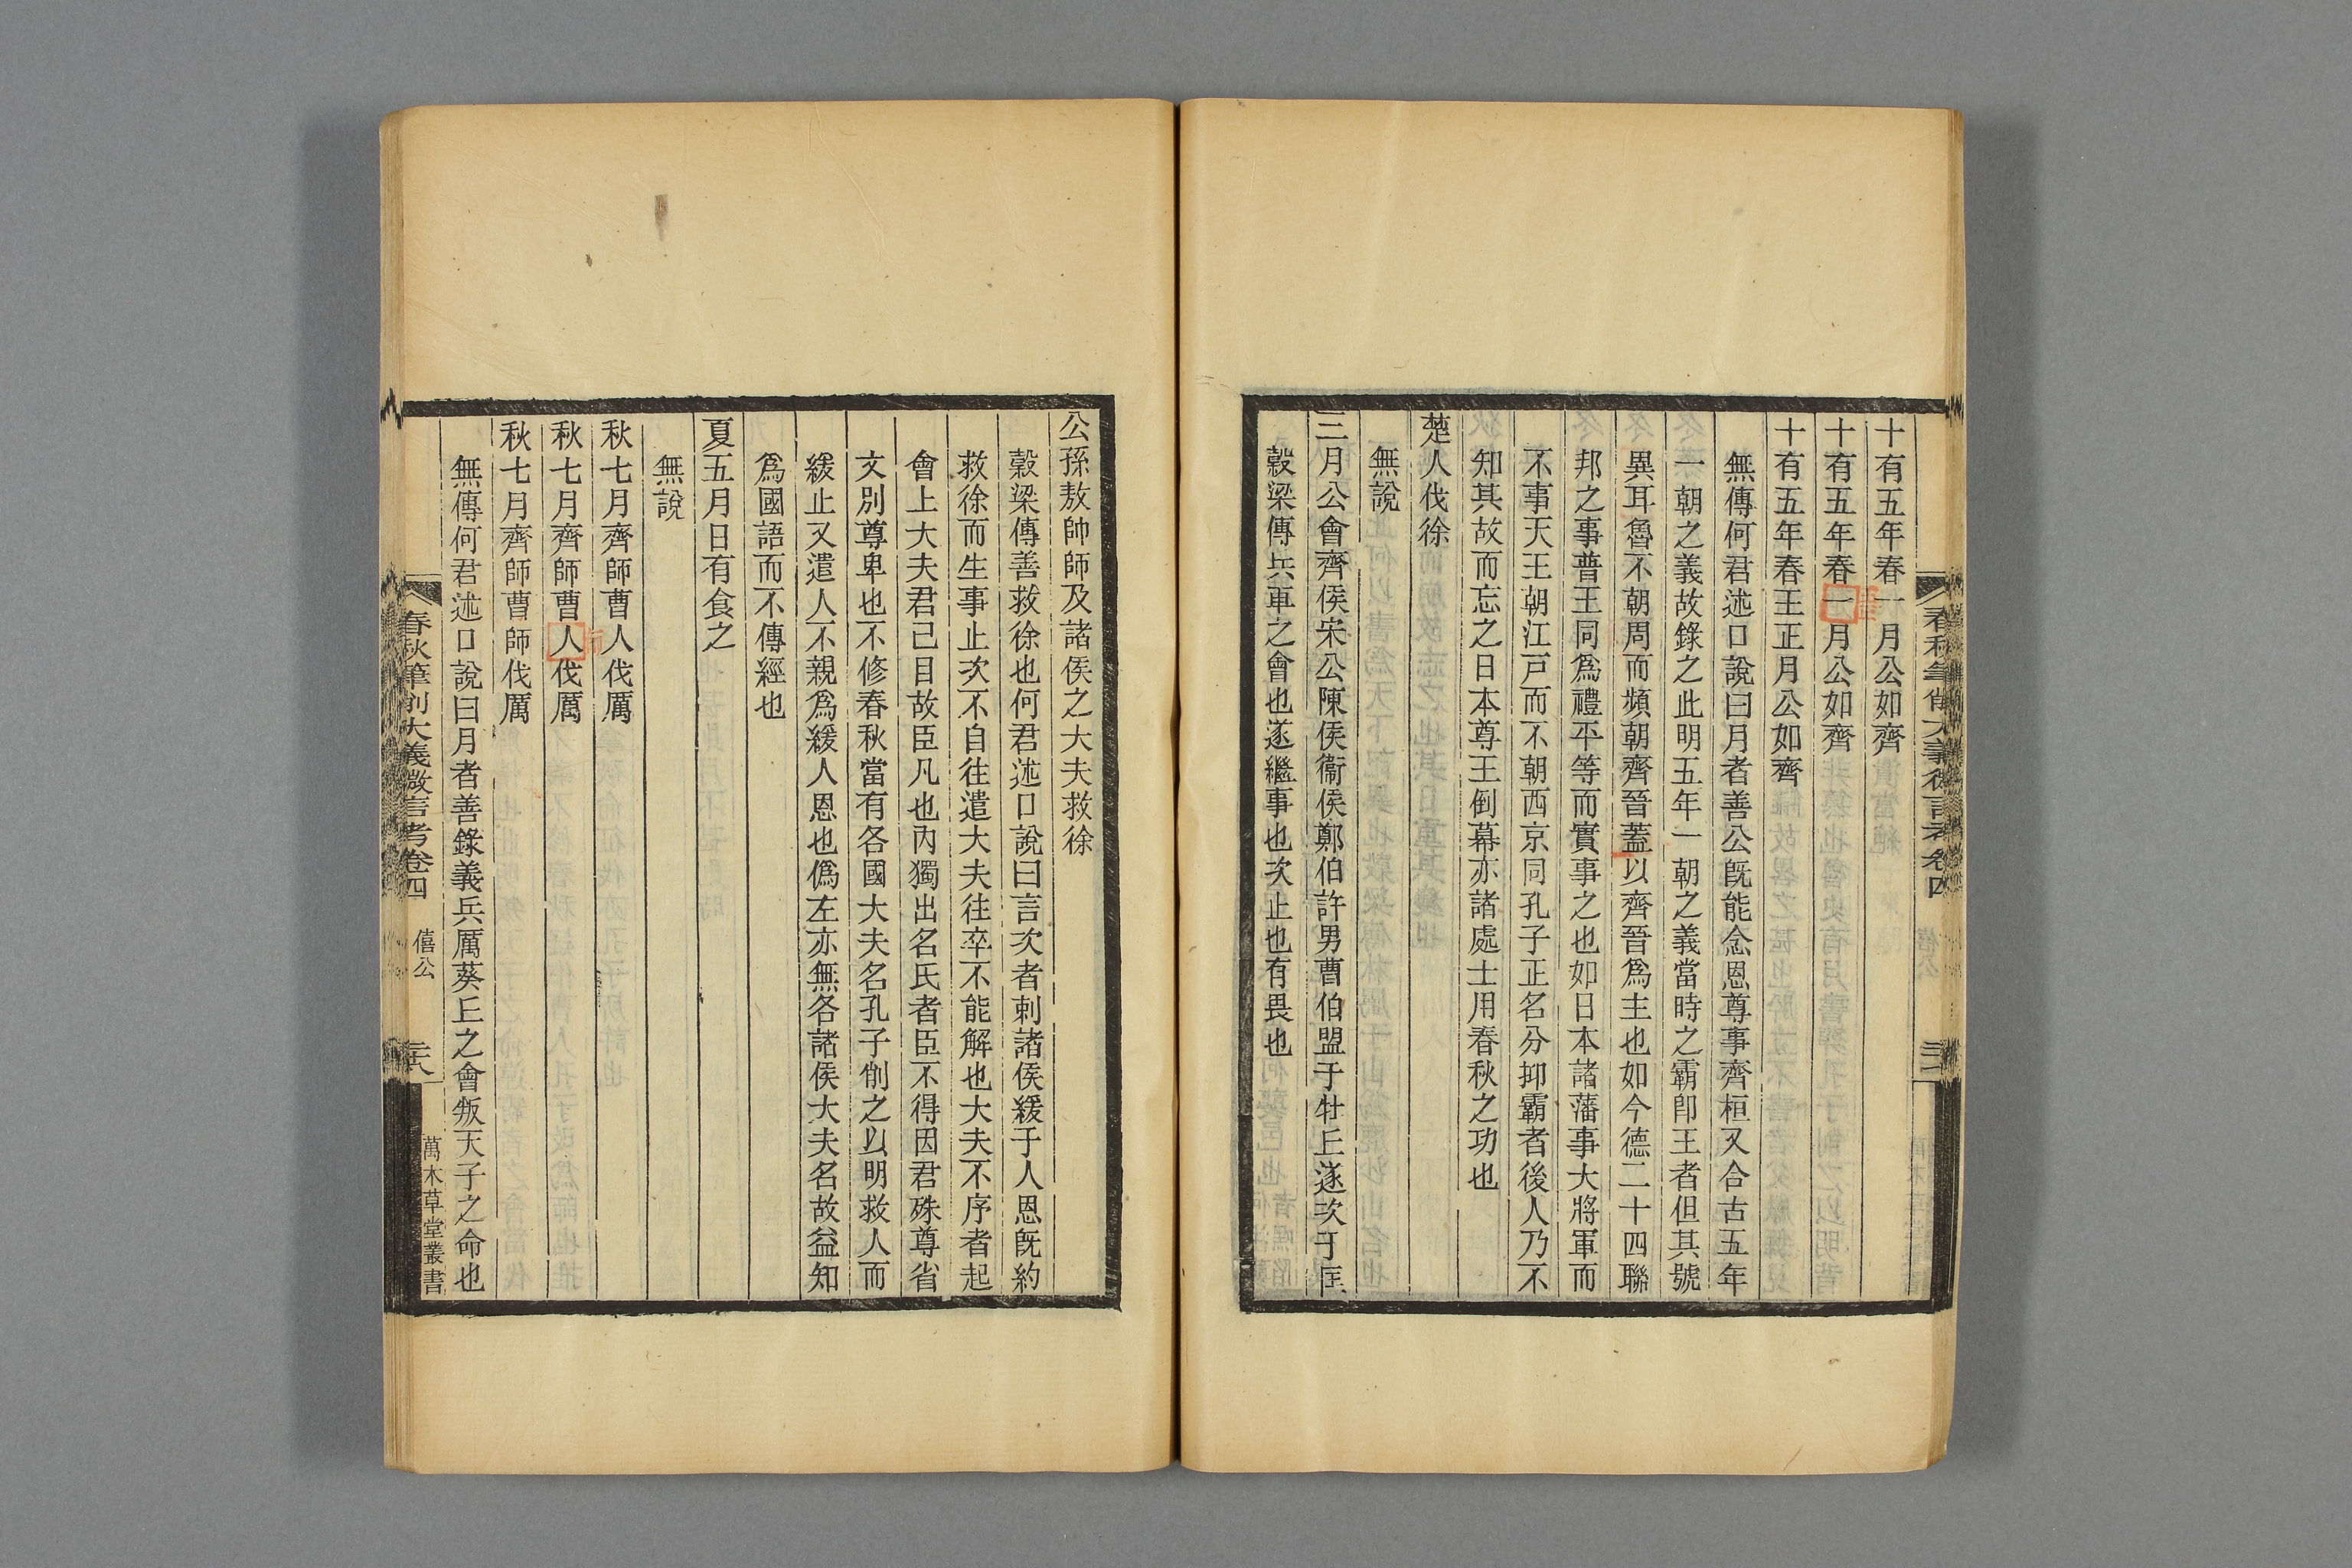 十有五年春一月公如齊
十有五年春一月公如齊
十有五年春王正月公如齊
無傳何君述口說曰月者善公旣能念恩尊事齊桓又合古五年
一朝之義故錄之此明五年一朝之義當時之霸卽王者但其號
異耳魯不朝周而頻朝齊晉蓋以齊晉爲主也如今德二十四聯
邦之事普王同爲禮平等而實事之也如日本諸藩事大將軍而
不事天王朝江戸而不朝西京同孔子正名分抑霸者後人乃不
知其故而忘之日本尊王倒幕亦諸處士用春秋之功也
楚人伐徐
無說
三月公會齊侯宋公陳侯衞侯鄭伯許男曹伯盟于牡丘遂次于匡
穀梁傳兵車之會也遂繼事也次止也有畏也
公孫敖帥師及諸侯之大夫救徐
穀梁傳善救徐也何君述口說曰言次者刺諸侯緩于人恩旣約
救徐而生事止次不自往遣大夫往卒不能解也大夫不序者起
會上大夫君己目故臣凡也內獨出名氏者臣不得因君殊尊省
文別尊卑也不修春秋當有各國大夫名孔子削之以明救人而
緩止又遣人不親爲緩人恩也僞左亦無各諸侯大夫名故益知
爲國語而不傳經也
夏五月日有食之
無說
秋七月齊師曹人伐厲
秋七月齊師曹人伐厲
秋七月齊師曹師伐厲
無傳何君述口說曰月者善錄義兵厲葵丘之會叛天子之命也
春秋筆削大義微言考卷四
僖公
萬木草堂叢書